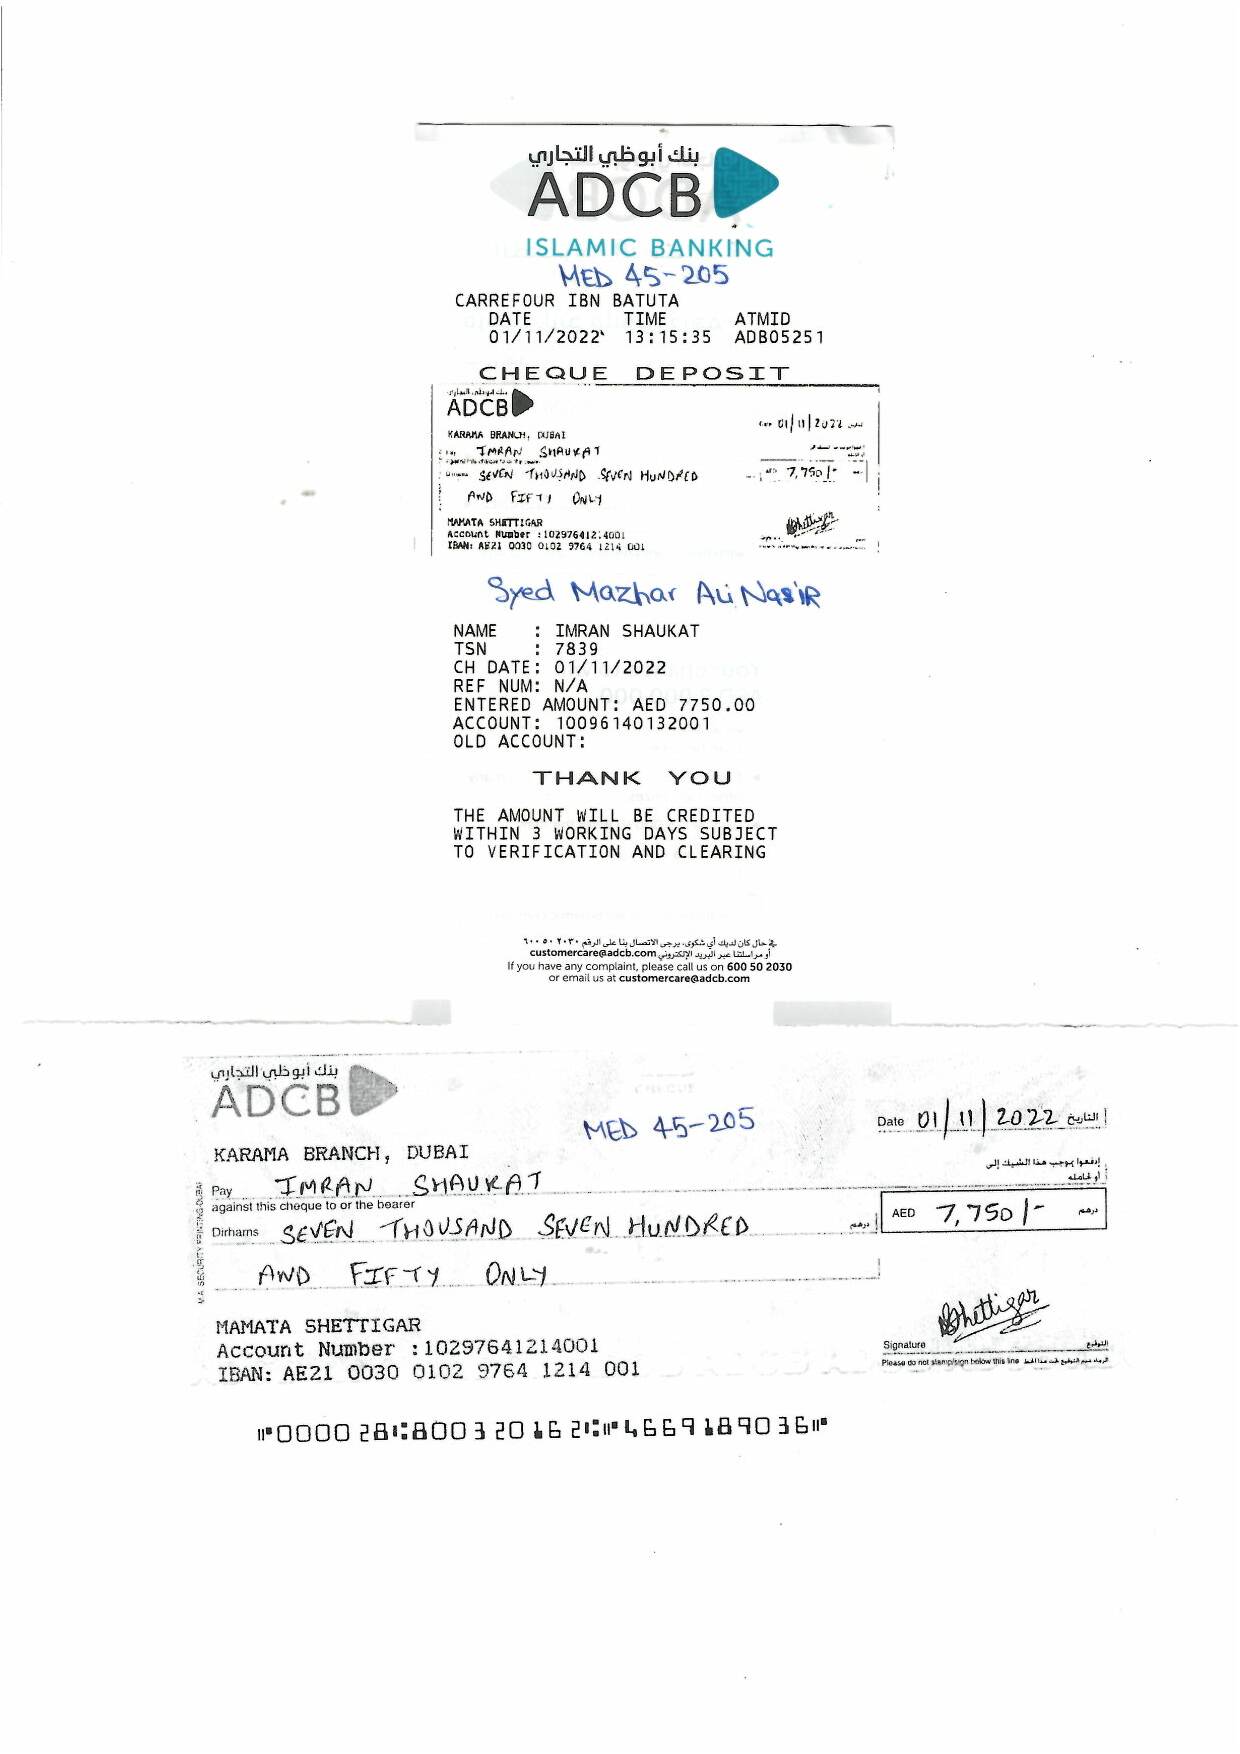 بنك أبوظبي التجاري
ADCB
ISLAMIC BANKING
MED 45-205
CARREFOUR IBN BATUTA
DATE TIME ATMID
01/11/2022 13:15:35 ADB05251
CHEQUE DEPOSIT
بنك أبوظبي التجاري
ADCB
01/11/2022
KARAMA BRANCH, DUBAI
IMRAN SHAUKAT
SEVEN THOUSAND SEVEN HUNDRED
7,750/-
AND FIFTY ONLY
MAMATA SHETTIGAR
Account Number :10297641214001
IBAN: AE21 0030 0102 9764 1214 001
Syed Mazhar Ali NasiR
NAME : IMRAN SHAUKAT
TSN : 7839
CH DATE: 01/11/2022
REF NUM: N/A
ENTERED AMOUNT: AED 7750.00
ACCOUNT: 10096140132001
OLD ACCOUNT:
THANK YOU
THE AMOUNT WILL BE CREDITED
WITHIN 3 WORKING DAYS SUBJECT
TO VERIFICATION AND CLEARING
في حال كان لديك أي شكوى، يرجى الاتصال بنا على الرقم ٦٠٠ ٥٠ ٢٠٣٠
أو مراسلتنا عبر البريد الإلكتروني customercare@adcb.com
If you have any complaint, please call us on 600 50 2030
or email us at customercare@adcb.com
بنك أبوظبي التجاري
ADCB
MED 45-205
Date 01/11/2022 التاريخ
KARAMA BRANCH, DUBAI
إدفعوا بموجب هذا الشيك إلى
Pay IMRAN SHAUKAT أو لحامله
against this cheque to or the bearer
Dirhams SEVEN THOUSAND SEVEN HUNDRED درهم AED 7,750/- درهم
AND FIFTY ONLY
MAMATA SHETTIGAR
Shettigar
Account Number :10297641214001
Signature التوقيع
IBAN: AE21 0030 0102 9764 1214 001
Please do not stamp/sign below this line الرجاء عدم التوقيع تحت هذا الخط
⑈000028⑆800320162⑆⑈4669189036⑈